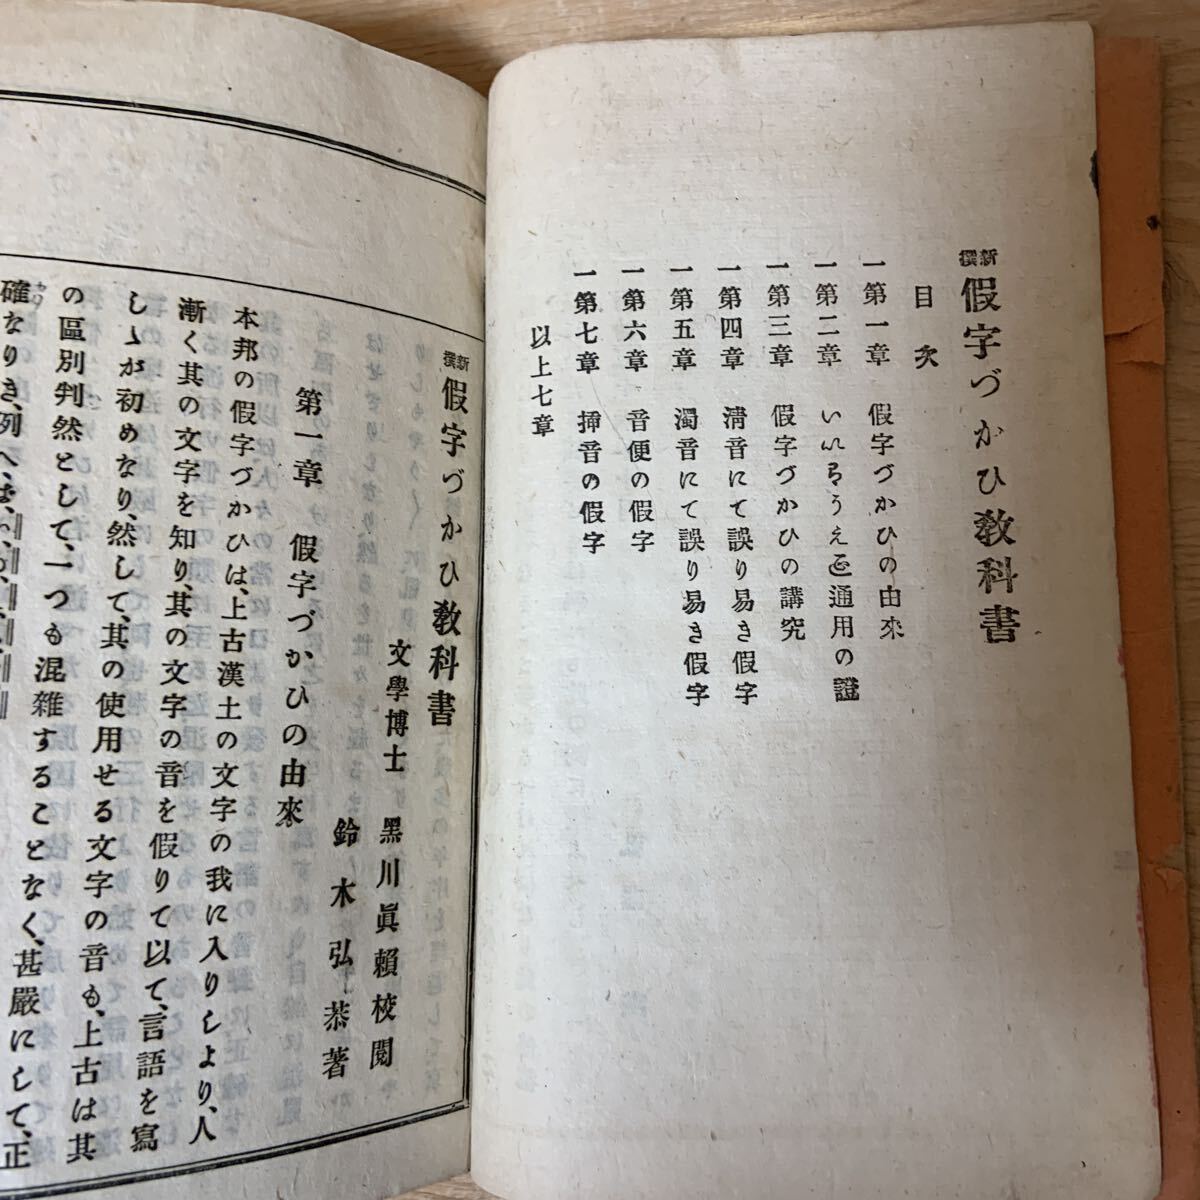 新撰 假字づかひ敎科書
目次
一第一章 假字づかひの由來
一第二章 いゐ𛀆うえ𛀁通用の證
一第三章 假字づかひの講究
一第四章 淸音にて誤り易き假字
一第五章 濁音にて誤り易き假字
一第六章 音便の假字
一第七章 揷音の假字
以上七章
新撰 假字づかひ敎科書
文學博士 黑川眞賴校閱
鈴木弘恭著
第一章 假字づかひの由來
本邦の假字づかひは、上古漢土の文字の我に入りしより、人
漸く其の文字を知り、其の文字の音を假りて以て、言語を寫
しゝが初めなり、然して、其の使用せる文字の音も、上古は其
の區別判然として、一つも混雜することなく、甚嚴にして、正
確なりき、例へ